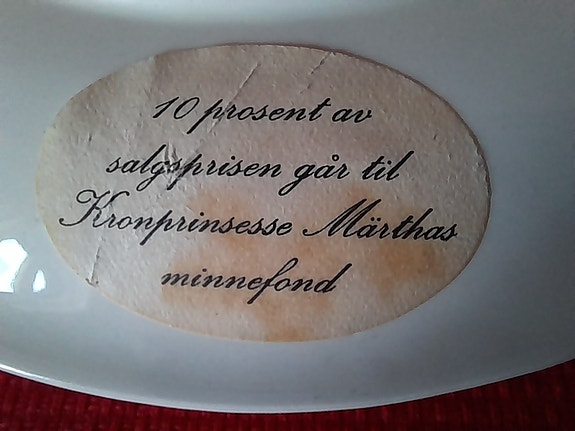 10 prosent av
salgsprisen går til
Kronprinsesse Märthas
minnefond